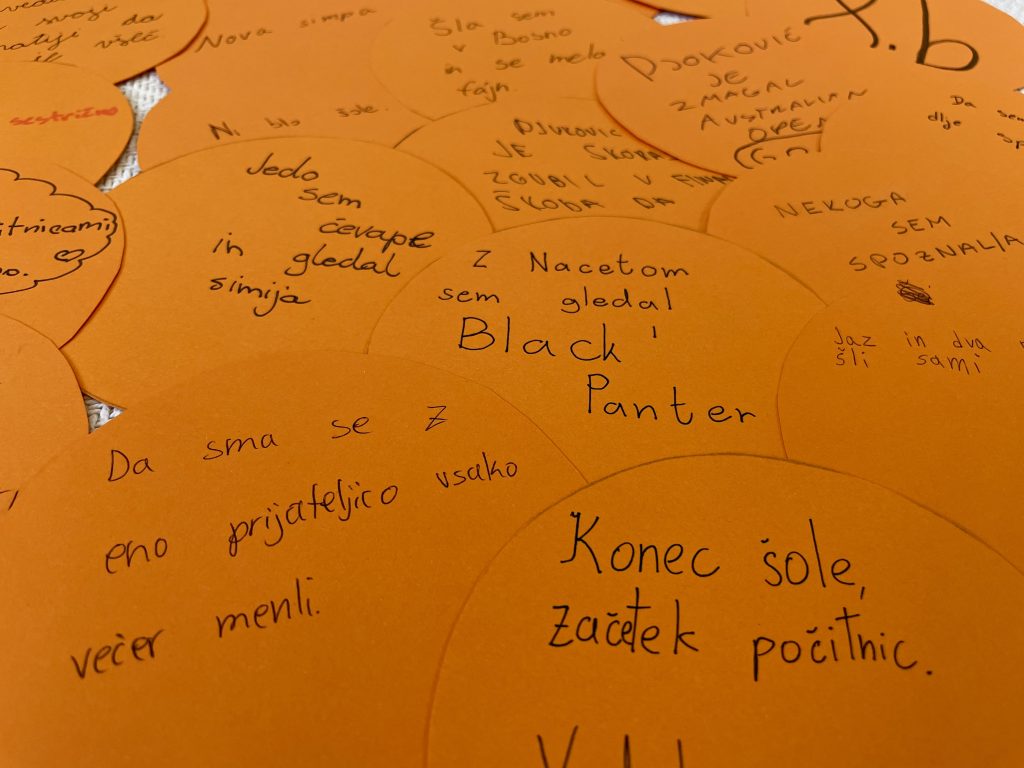 svoje da
všeč
sestrično
Nova simpa
Ni blo šole.
Šla sem
v Bosno
in se melo
fajn.
DJOKOVIČ
JE
ZMAGAL
AUSTRALIAN
OPEN
JE ŠKODA
ZGUBIL V
ŠKODA DA
Da
dlje
NEKOGA
SEM
SPOZNAL/A
Jedo
sem
čevape
in gledal
simija
Z Nacetom
sem gledal
Black
Panter
Jaz in dva
šli sami
Da sma se z
eno prijateljico vsako
večer menli.
Konec šole,
začetek počitnic.